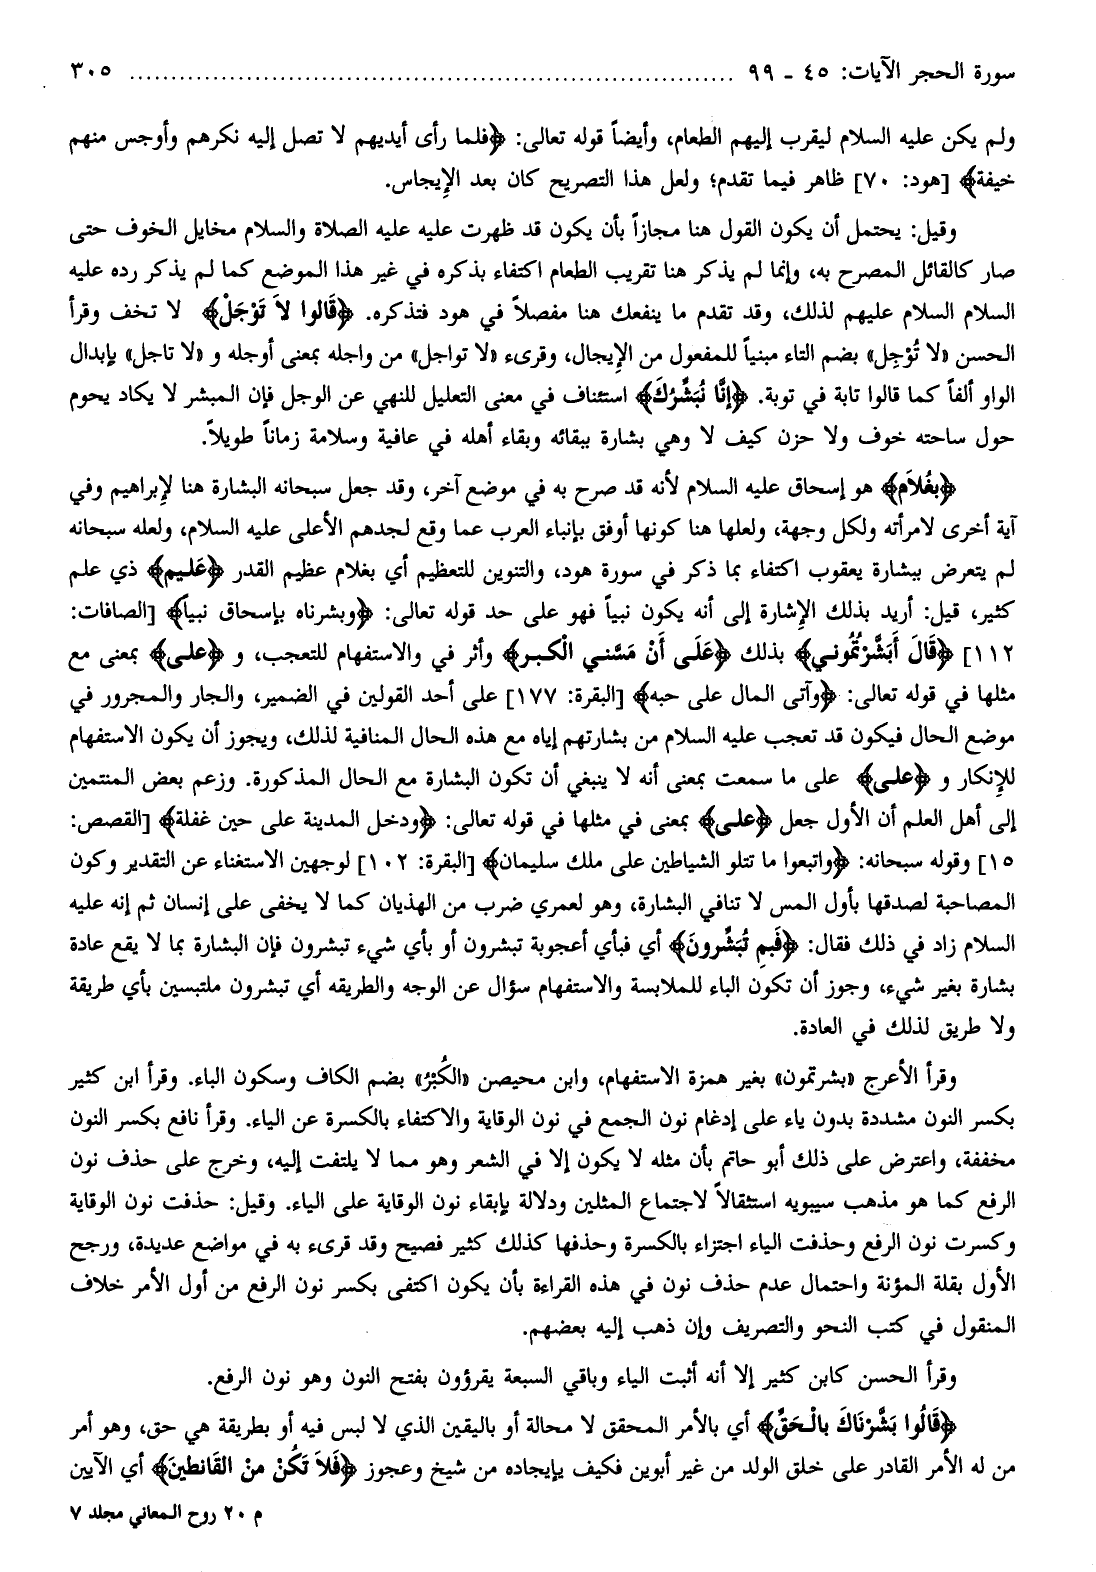 سورة الحجر الآيات: ٤٥ - ٩٩ ........................................................................ ٣٠٥
ولم يكن عليه السلام ليقرب إليهم الطعام، وأيضاً قوله تعالى: ﴿فلما رأى أيديهم لا تصل إليه نكرهم وأوجس منهم
خيفة﴾ [هود: ٧٠] ظاهر فيما تقدم؛ ولعل هذا التصريح كان بعد الإيجاس.
وقيل: يحتمل أن يكون القول هنا مجازاً بأن يكون قد ظهرت عليه عليه الصلاة والسلام مخايل الخوف حتى
صار كالقائل المصرح به، وإنما لم يذكر هنا تقريب الطعام اكتفاء بذكره في غير هذا الموضع كما لم يذكر رده عليه
السلام السلام عليهم لذلك، وقد تقدم ما ينفعك هنا مفصلاً في هود فتذكره. ﴿قَالوا لاَ تَوْجَلْ﴾ لا تخف وقرأ
الحسن «لا تُوْجِل» بضم التاء مبنياً للمفعول من الإيجال، وقرىء «لا تواجل» من واجله بمعنى أوجله و «لا تاجل» بإبدال
الواو ألفاً كما قالوا تابة في توبة. ﴿إنَّا نُبَشِّرُكَ﴾ استئناف في معنى التعليل للنهي عن الوجل فإن المبشر لا يكاد يحوم
حول ساحته خوف ولا حزن كيف لا وهي بشارة ببقائه وبقاء أهله في عافية وسلامة زماناً طويلاً.
﴿بغُلاَم﴾ هو إسحاق عليه السلام لأنه قد صرح به في موضع آخر، وقد جعل سبحانه البشارة هنا لإبراهيم وفي
آية أخرى لامرأته ولكل وجهة، ولعلها هنا كونها أوفق بإنباء العرب عما وقع لجدهم الأعلى عليه السلام، ولعله سبحانه
لم يتعرض ببشارة يعقوب اكتفاء بما ذكر في سورة هود، والتنوين للتعظيم أي بغلام عظيم القدر ﴿عَليم﴾ ذي علم
كثير، قيل: أريد بذلك الإشارة إلى أنه يكون نبياً فهو على حد قوله تعالى: ﴿وبشرناه بإسحاق نبياً﴾ [الصافات:
١١٢] ﴿قَالَ أَبَشَّرْتُمُوني﴾ بذلك ﴿عَلَى أَنْ مَسَّني الْكبر﴾ وأثر في والاستفهام للتعجب، و ﴿على﴾ بمعنى مع
مثلها في قوله تعالى: ﴿وآتى المال على حبه﴾ [البقرة: ١٧٧] على أحد القولين في الضمير، والجار والمجرور في
موضع الحال فيكون قد تعجب عليه السلام من بشارتهم إياه مع هذه الحال المنافية لذلك، ويجوز أن يكون الاستفهام
للإنكار و ﴿على﴾ على ما سمعت بمعنى أنه لا ينبغي أن تكون البشارة مع الحال المذكورة. وزعم بعض المنتمين
إلى أهل العلم أن الأول جعل ﴿على﴾ بمعنى في مثلها في قوله تعالى: ﴿ودخل المدينة على حين غفلة﴾ [القصص:
١٥] وقوله سبحانه: ﴿واتبعوا ما تتلو الشياطين على ملك سليمان﴾ [البقرة: ١٠٢] لوجهين الاستغناء عن التقدير وكون
المصاحبة لصدقها بأول المس لا تنافي البشارة، وهو لعمري ضرب من الهذيان كما لا يخفى على إنسان ثم إنه عليه
السلام زاد في ذلك فقال: ﴿فَبمِ تُبَشِّرونَ﴾ أي فبأي أعجوبة تبشرون أو بأي شيء تبشرون فإن البشارة بما لا يقع عادة
بشارة بغير شيء، وجوز أن تكون الباء للملابسة والاستفهام سؤال عن الوجه والطريقه أي تبشرون ملتبسين بأي طريقة
ولا طريق لذلك في العادة.
وقرأ الأعرج «بشرتمون» بغير همزة الاستفهام، وابن محيصن «الكُبْرُ» بضم الكاف وسكون الباء. وقرأ ابن كثير
بكسر النون مشددة بدون ياء على إدغام نون الجمع في نون الوقاية والاكتفاء بالكسرة عن الياء. وقرأ نافع بكسر النون
مخففة، واعترض على ذلك أبو حاتم بأن مثله لا يكون إلا في الشعر وهو مما لا يلتفت إليه، وخرج على حذف نون
الرفع كما هو مذهب سيبويه استثقالاً لاجتماع المثلين ودلالة بإبقاء نون الوقاية على الياء. وقيل: حذفت نون الوقاية
وكسرت نون الرفع وحذفت الياء اجتزاء بالكسرة وحذفها كذلك كثير فصيح وقد قرىء به في مواضع عديدة، ورجح
الأول بقلة المؤنة واحتمال عدم حذف نون في هذه القراءة بأن يكون اكتفى بكسر نون الرفع من أول الأمر خلاف
المنقول في كتب النحو والتصريف وإن ذهب إليه بعضهم.
وقرأ الحسن كابن كثير إلا أنه أثبت الياء وباقي السبعة يقرؤون بفتح النون وهو نون الرفع.
﴿قَالُوا بَشَّرْنَاكَ بالْحَقِّ﴾ أي بالأمر المحقق لا محالة أو باليقين الذي لا لبس فيه أو بطريقة هي حق، وهو أمر
من له الأمر القادر على خلق الولد من غير أبوين فكيف بإيجاده من شيخ وعجوز ﴿فَلاَ تَكُنْ منَ القَانطينَ﴾ أي الآيين
م ٢٠ روح المعاني مجلد ٧